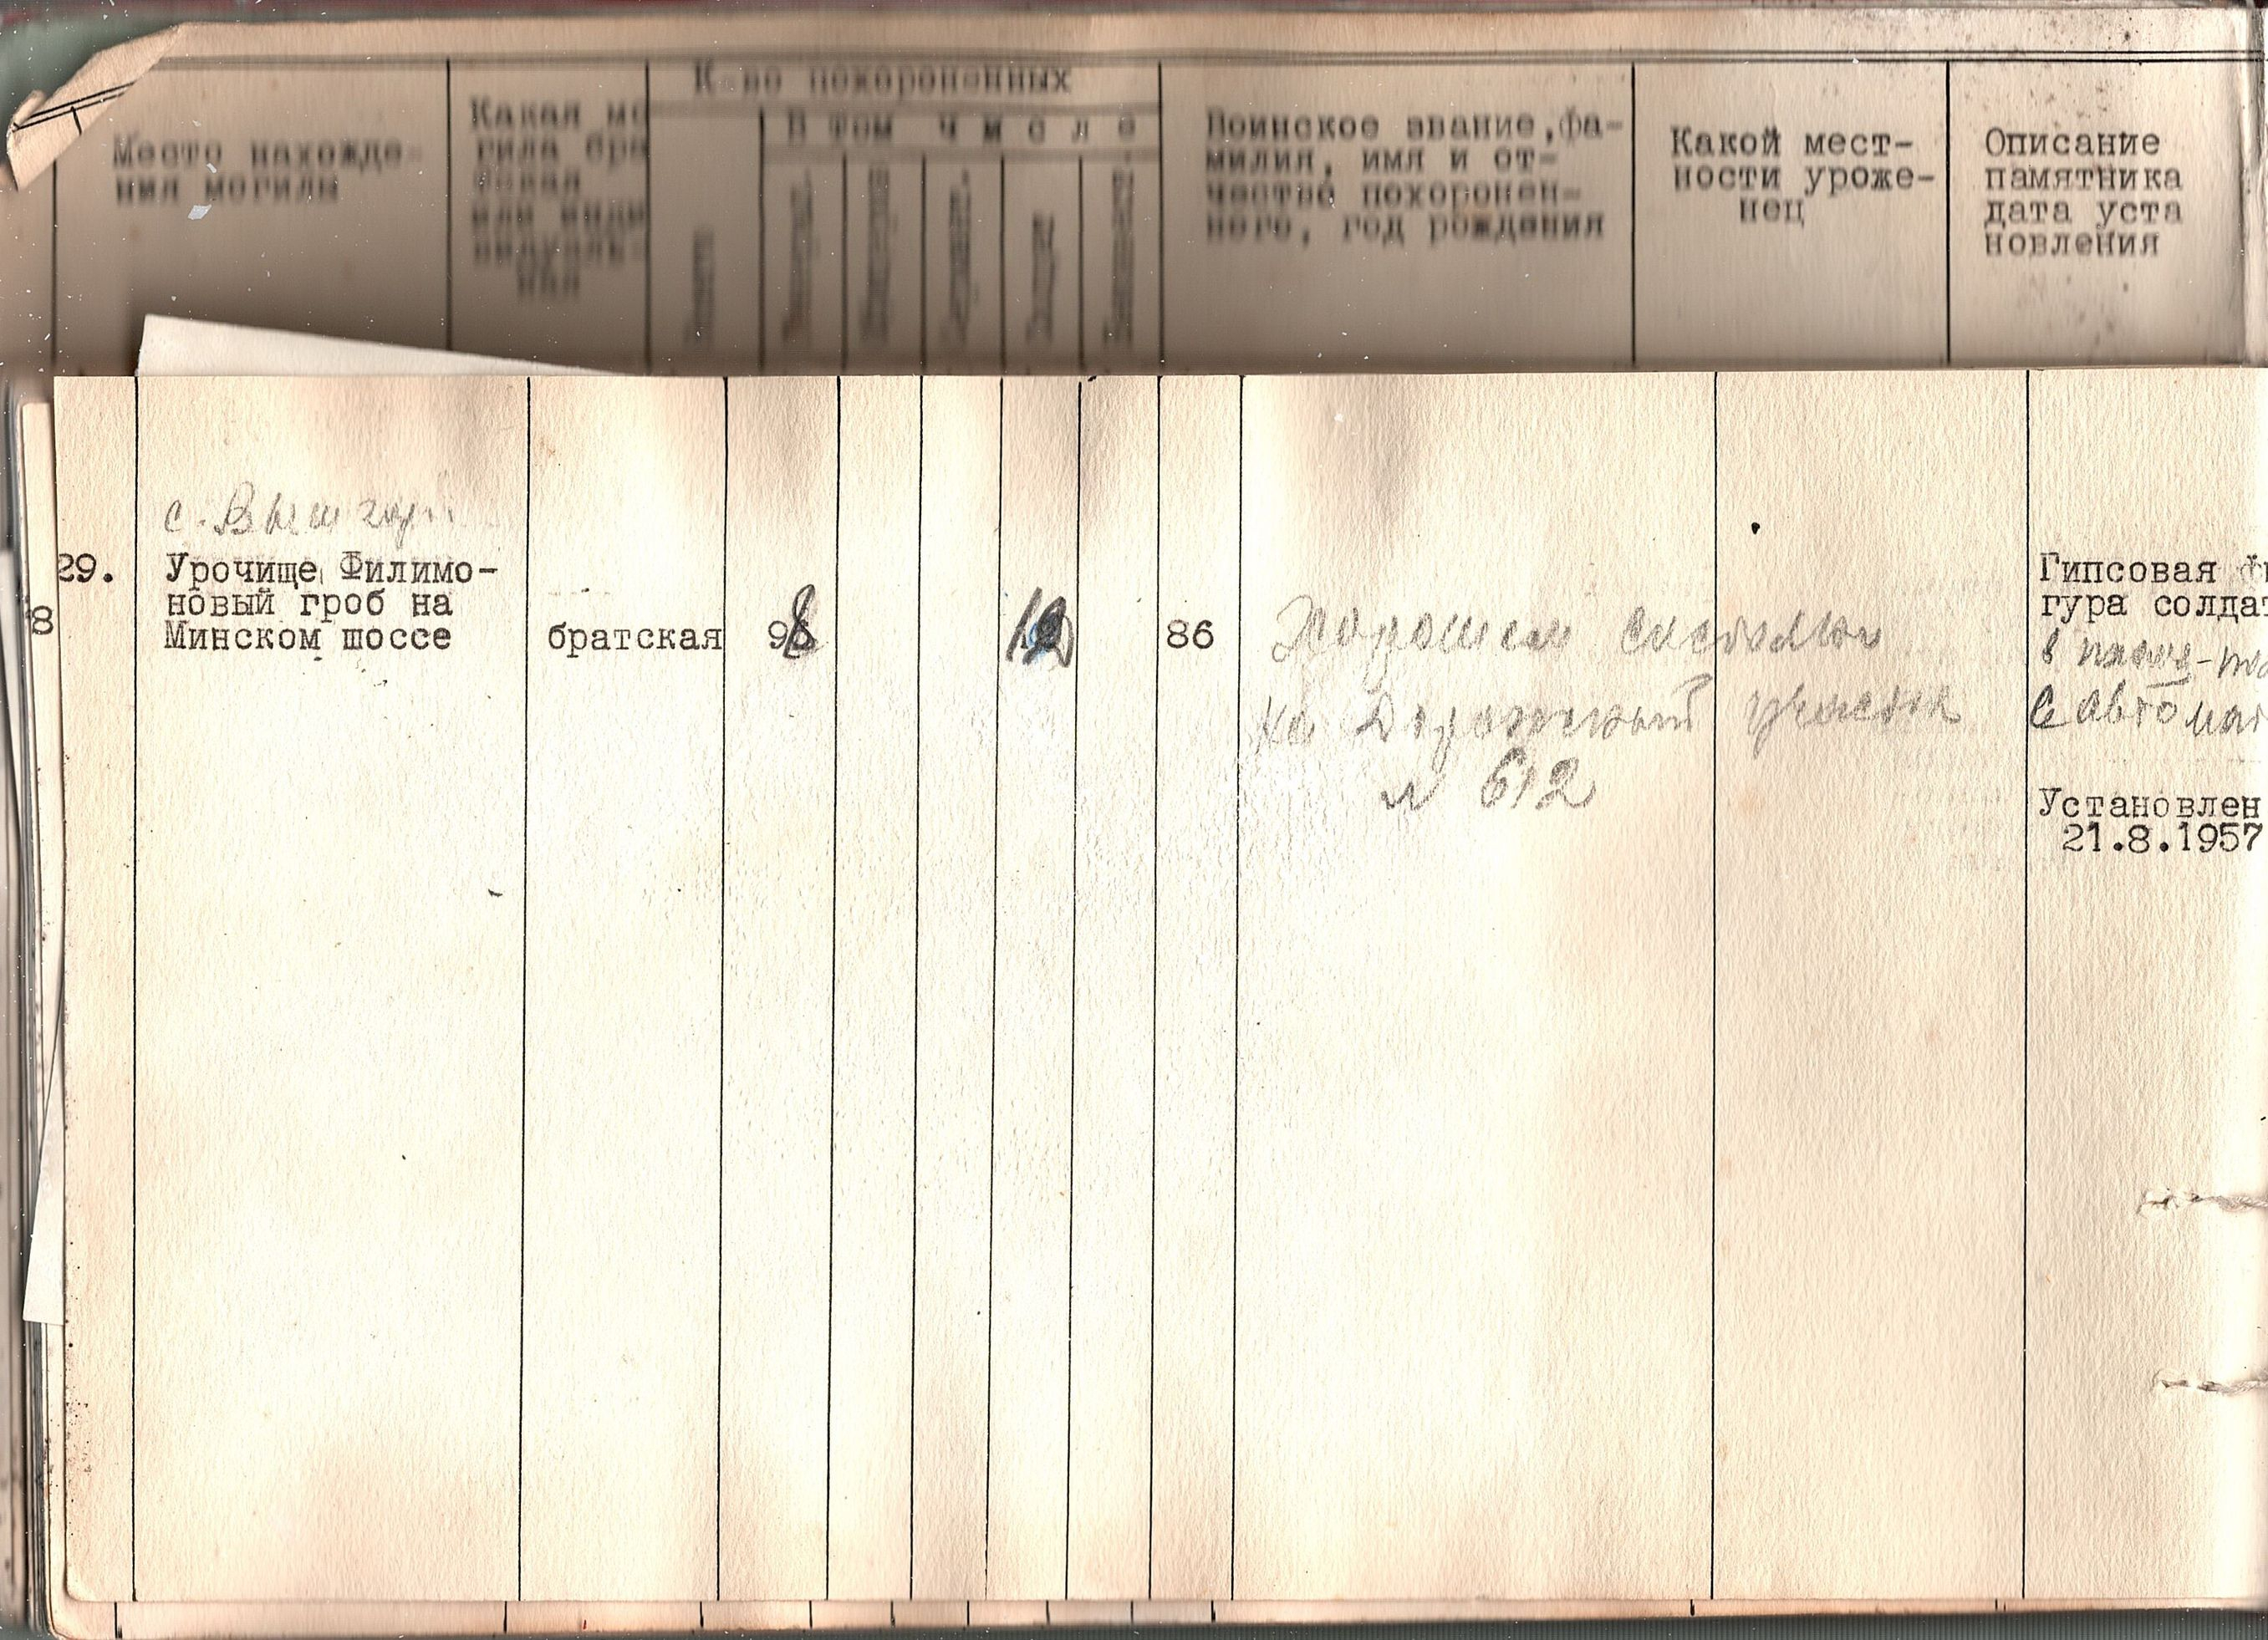 К-во похороненных
Место нахожде-
ния могилы
Какая мо
гила бра
или инди
видуаль-
ная
В том числе
Воинское звание,фа-
милия, имя и от-
чество похоронен-
ного, год рождения
Какой мест-
ности уроже-
нец
Описание
памятника
дата уста
новления
с. Вышгор
29.
Урочище Филимо-
новый гроб на
Минском шоссе
8
братская
98
12
86
Хорошем состоянии
на Дорожный участок
№ 612
Гипсовая фи
гура солдат
в
с автомат
Установлен
21.8.1957